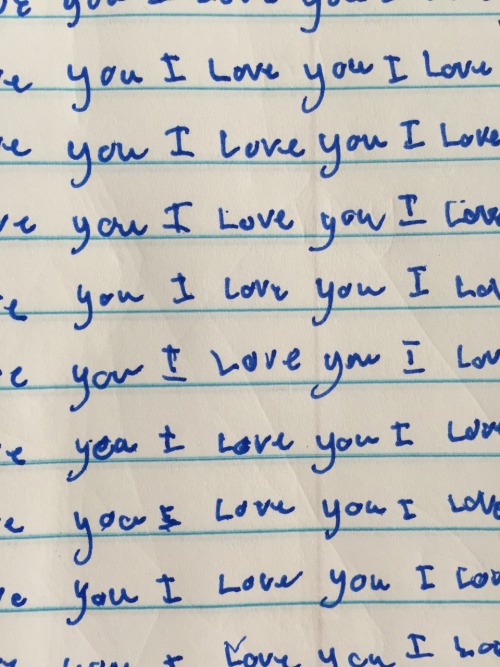 you I Love you
ve you I Love you I Love
ve you I Love you I Love
ve you I Love you I Love
e you I Love you I Lov
e you I Love you I Lov
e yea I Love you I Love
e you I Love you I Love
e you I Love you I Lov
you I Love you I Lo